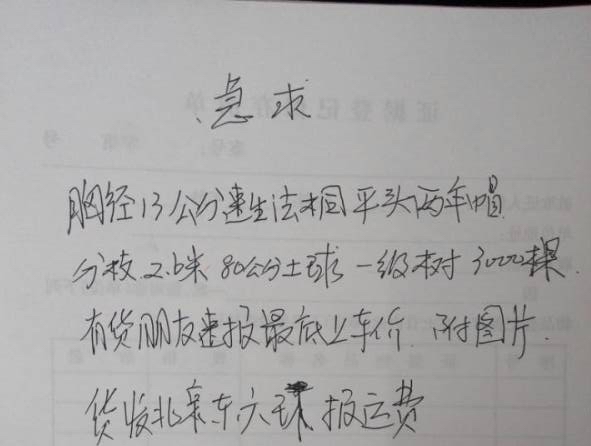 急求
胸径13公分速生法桐平头两年帽
分枝2.6米80公分土球一级树3000棵.
有货朋友速报最底上车价.附图片.
货发北京东六环报运费